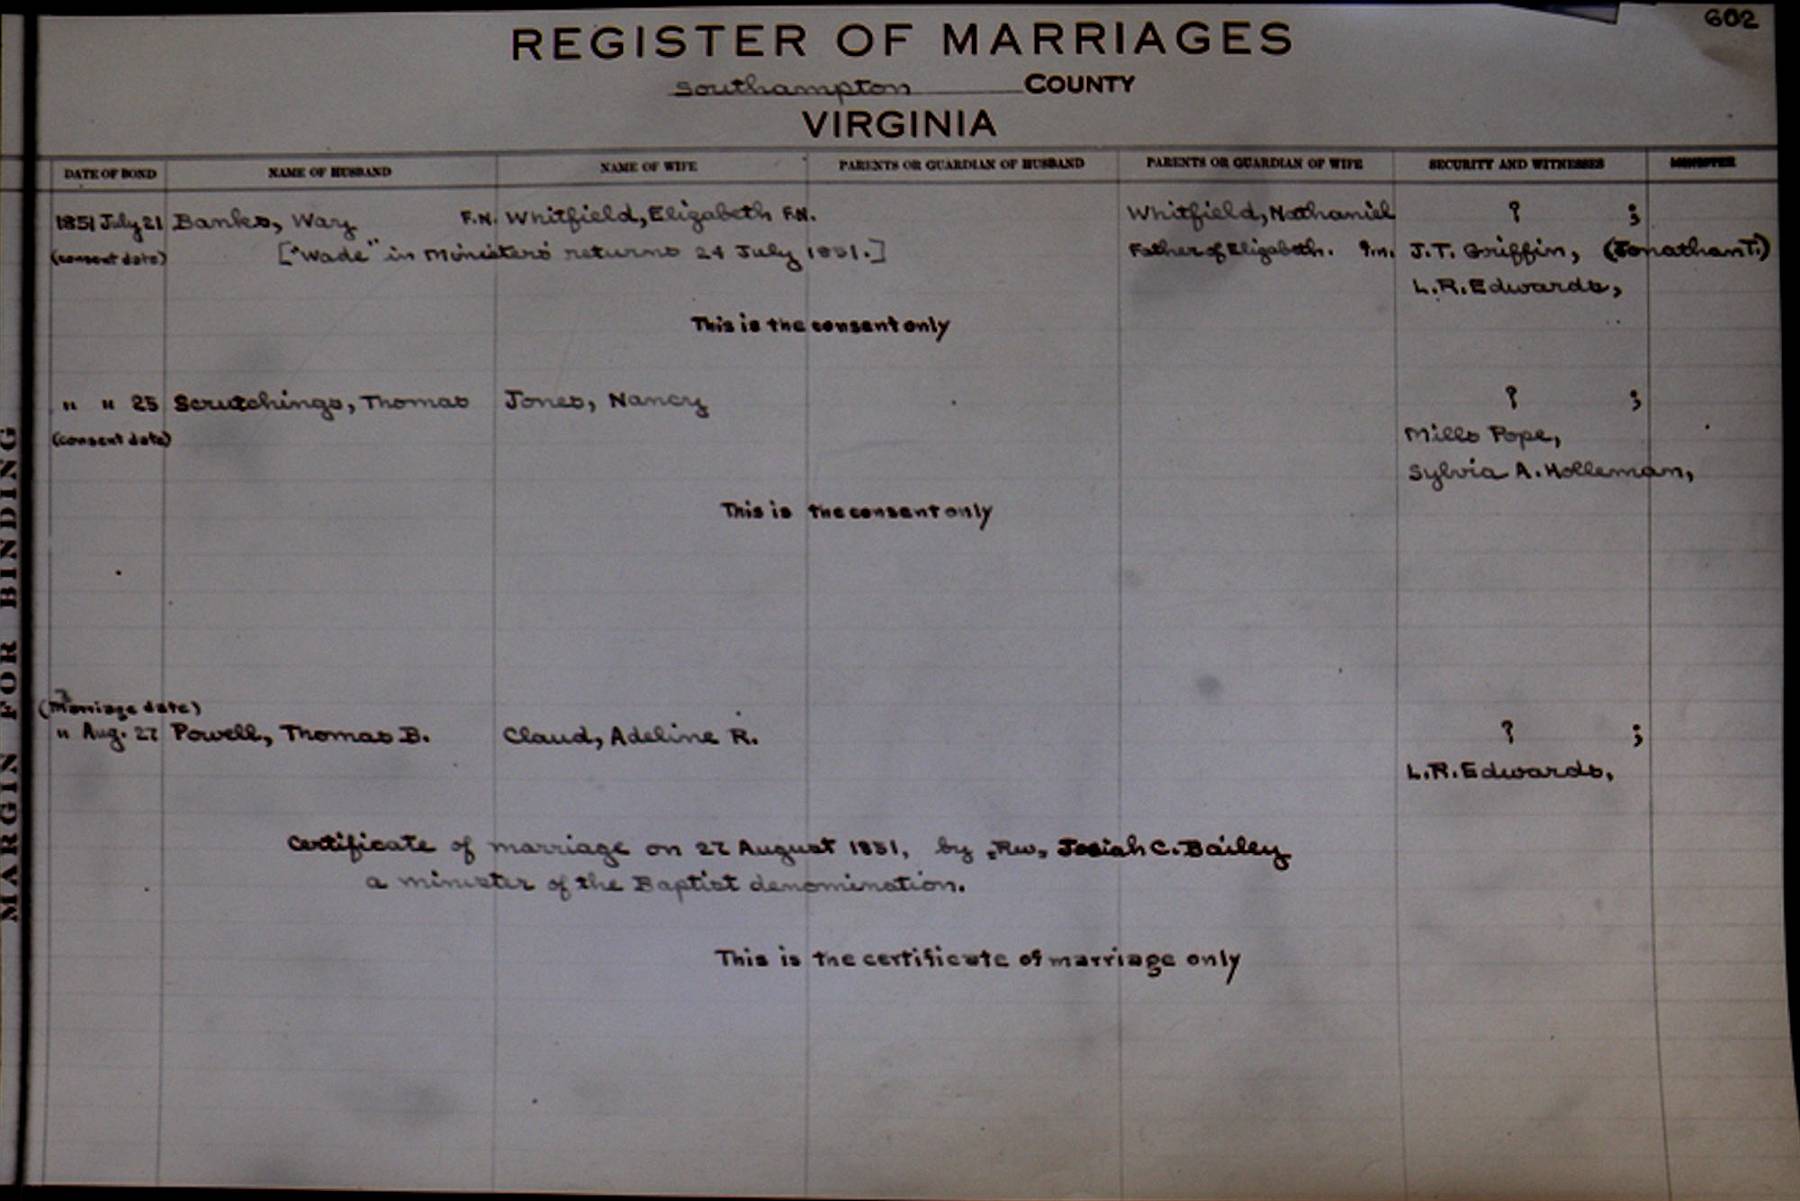 602
REGISTER OF MARRIAGES
Southampton COUNTY
VIRGINIA
DATE OF BOND NAME OF HUSBAND NAME OF WIFE PARENTS OR GUARDIAN OF HUSBAND PARENTS OR GUARDIAN OF WIFE SECURITY AND WITNESSES MINISTER
1851 July 21 Banks, Way F.N. Whitfield, Elizabeth F.N. Whitfield, Nathaniel ? ;
(consent date) ["Wade" in Ministers' returns 24 July 1851.] Father of Elizabeth. J.T. Griffin, (Jonathan T.)
L.R. Edwards,
This is the consent only
" " 25 Scrutchings, Thomas Jones, Nancy ? ;
(consent date) Mills Pope,
Sylvia A. Holleman,
This is the consent only
(Marriage date)
" Aug. 27 Powell, Thomas B. Claud, Adeline R. ? ;
L.R. Edwards,
Certificate of marriage on 27 August 1851, by Rev. Josiah C. Bailey
a minister of the Baptist denomination.
This is the certificate of marriage only
MARGIN FOR BINDING